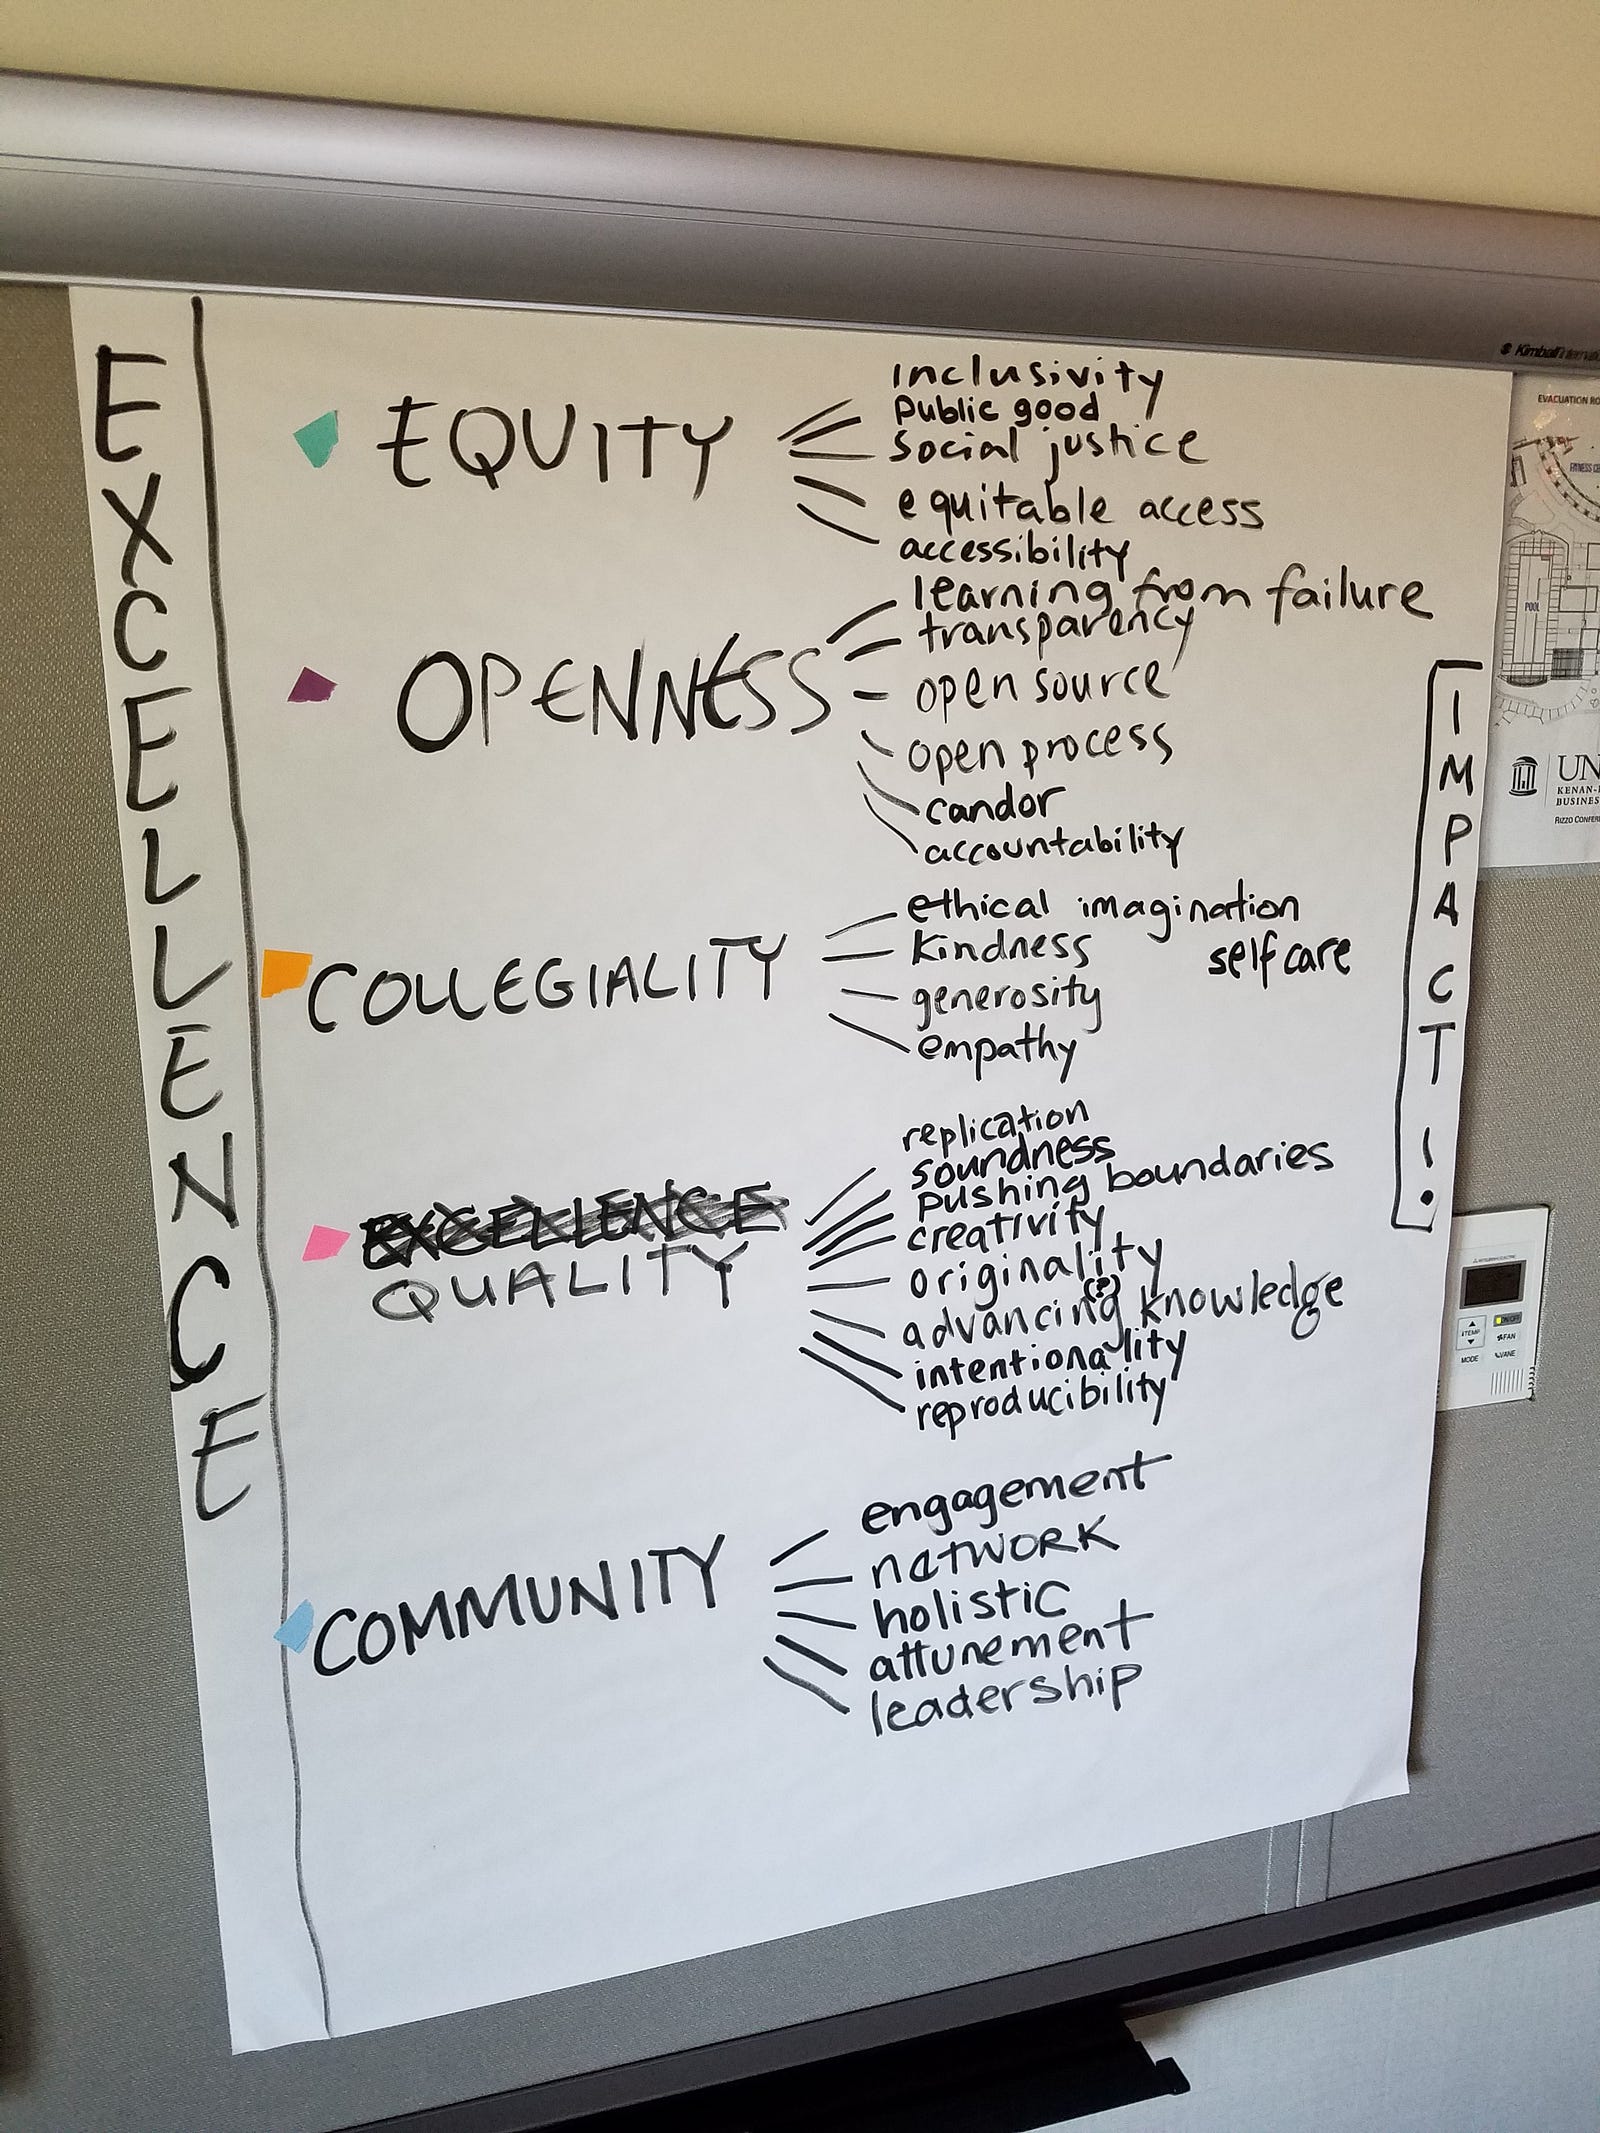 Kimball
EXCELLENCE
EQUITY
inclusivity
public good
social justice
equitable access
accessibility
OPENNESS
learning from failure
transparency
open source
open process
candor
accountability
COLLEGIALITY
ethical imagination
kindness
self care
generosity
empathy
EXCELLENCE
QUALITY
replication
soundness
pushing boundaries
creativity
originality
(?)
advancing knowledge
intentionality
reproducibility
COMMUNITY
engagement
netWORK
holistic
attunement
leadership
IMPACT!
EVACUATION
POOL
UN
KENAN-
BUSINES
RIZZO
ON/OFF
TEMP
FAN
MODE
VANE